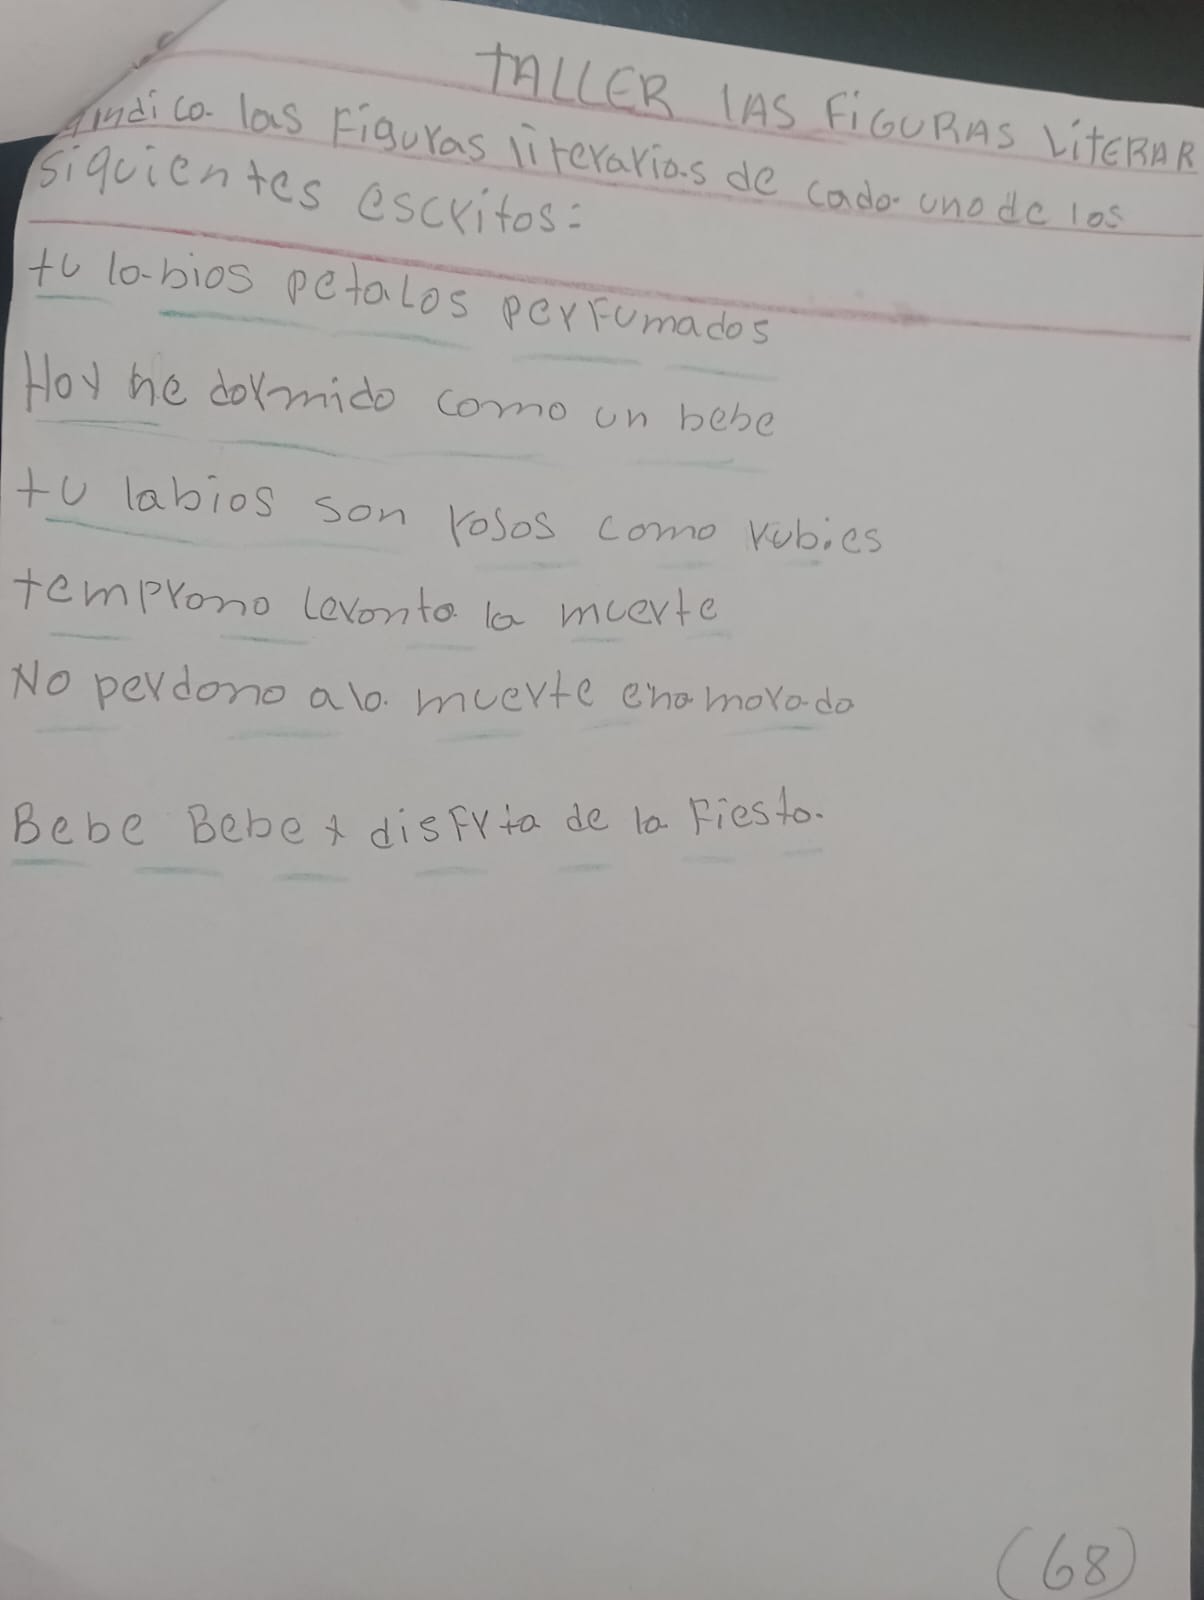 TALLER LAS FIGURAS LITERAR
indica las Figuras literarias de cada uno de los
siguientes escritos:
tu labios petalos perfumados
Hoy he dormido como un bebe
tu labios son rosos como rubies
temprono levonto la muerte
No perdono a la muerte enamorada
Bebe Bebe y disfrta de la Fiesta.
(68)